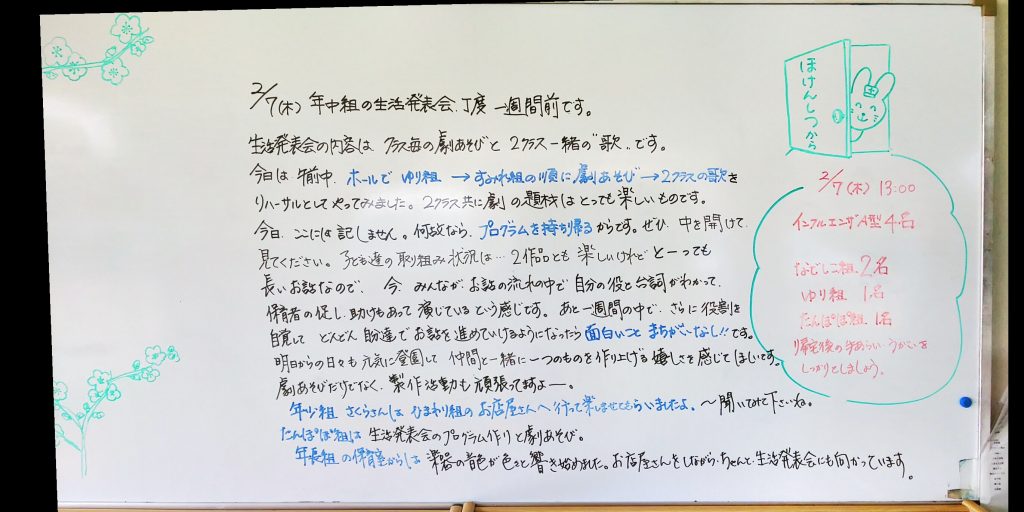 2/7(木) 年中組の生活発表会、丁度 一週間前です。
生活発表会の内容は クラス毎の劇あそびと 2クラス一緒の"歌"です。
今日は午前中、ホールで ゆり組 → すみれ組の順に劇あそび → 2クラスの歌を
リハーサルとしてやってみました。2クラス共に劇の題材はとっても楽しいものです。
今日、ここには記しません。何故なら、プログラムを持ち帰るからです。ぜひ、中を開けて、
見てください。子ども達の取り組み状況は…2作品とも楽しいけれどと一っても
長いお話なので、今、みんながお話の流れの中で自分の役と台詞がわかって、
保育者の促し、助けもあって演じているという感じです。あと一週間の中で、さらに役割を
自覚して どんどん自分達でお話を進めていけるようになったら面白いこと まちがいなし!!です。
明日からの日々も元気に登園して 仲間と一緒に一つのものを作り上げる嬉しさを感じてほしいです。
劇あそびだけでなく、製作活動も頑張ってますよー。
年少組 さくらさんは、ひまわり組のお店屋さんへ行って楽しませてもらいましたよ。〜聞いてみて下さいね。
たんぽぽ組は生活発表会のプログラム作りと劇あそび。
年長組の保育室からは楽器の音色が色々と響き始めました。お店屋さんをしながら、ちゃんと生活発表会にも向かっています。
ほけんしつから
2/7(木) 13:00
インフルエンザA型4名
なでしこ組 2名
ゆり組 1名
たんぽぽ組 1名
帰宅後の手あらい・うがいを
しっかりとしましょう。